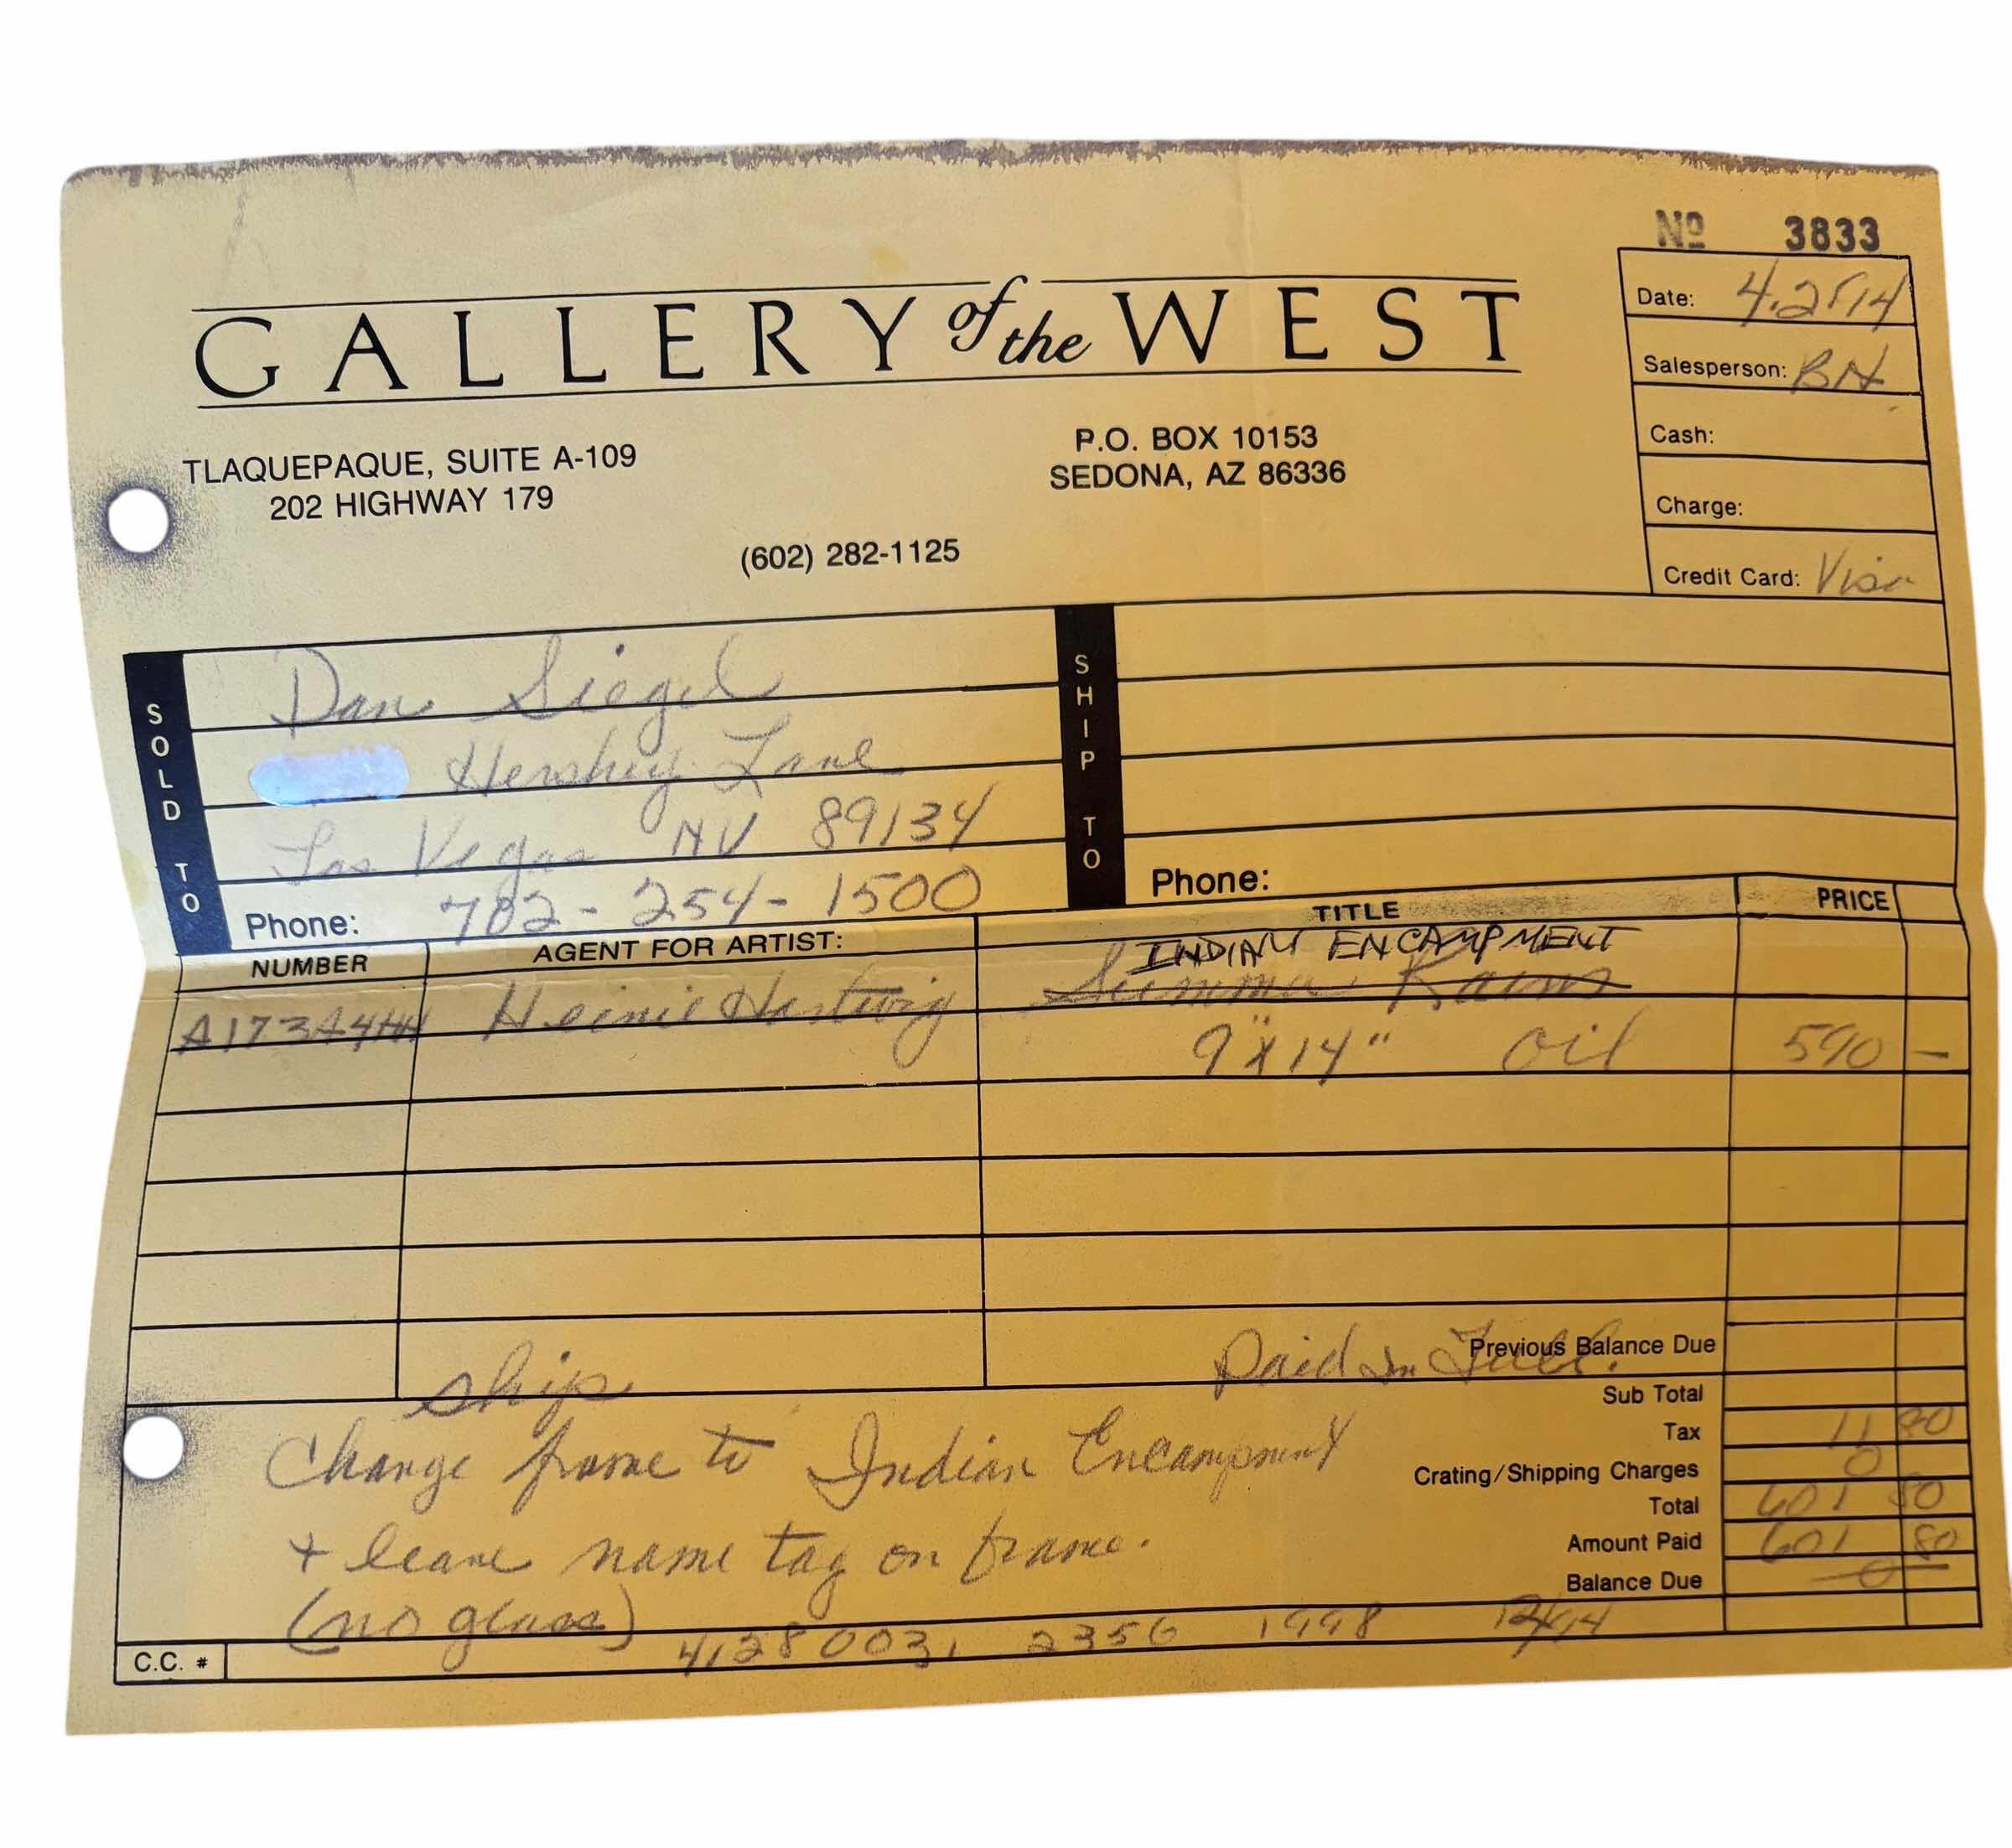 Nº 3833
GALLERY of the WEST
Date:
Salesperson: BN
Cash:
Charge:
Credit Card: Visa
TLAQUEPAQUE, SUITE A-109
202 HIGHWAY 179
P.O. BOX 10153
SEDONA, AZ 86336
(602) 282-1125
SOLD TO
Dan Siegel
Hershey Lane
Las Vegas NV 89134
Phone: 702-254-1500
SHIP TO
Phone:
NUMBER AGENT FOR ARTIST: TITLE PRICE
INDIAN ENCAMPMENT
Heinie Hartwig Summer Rains
9" X 14" Oil 590 -
Paid In Full. Previous Balance Due
Ship
Sub Total
Tax 11 80
Change frame to Indian Encampment
Crating/Shipping Charges 0
Total 601 80
+ leave name tag on frame.
Amount Paid 601 80
Balance Due 0
(no glass)
C.C. #